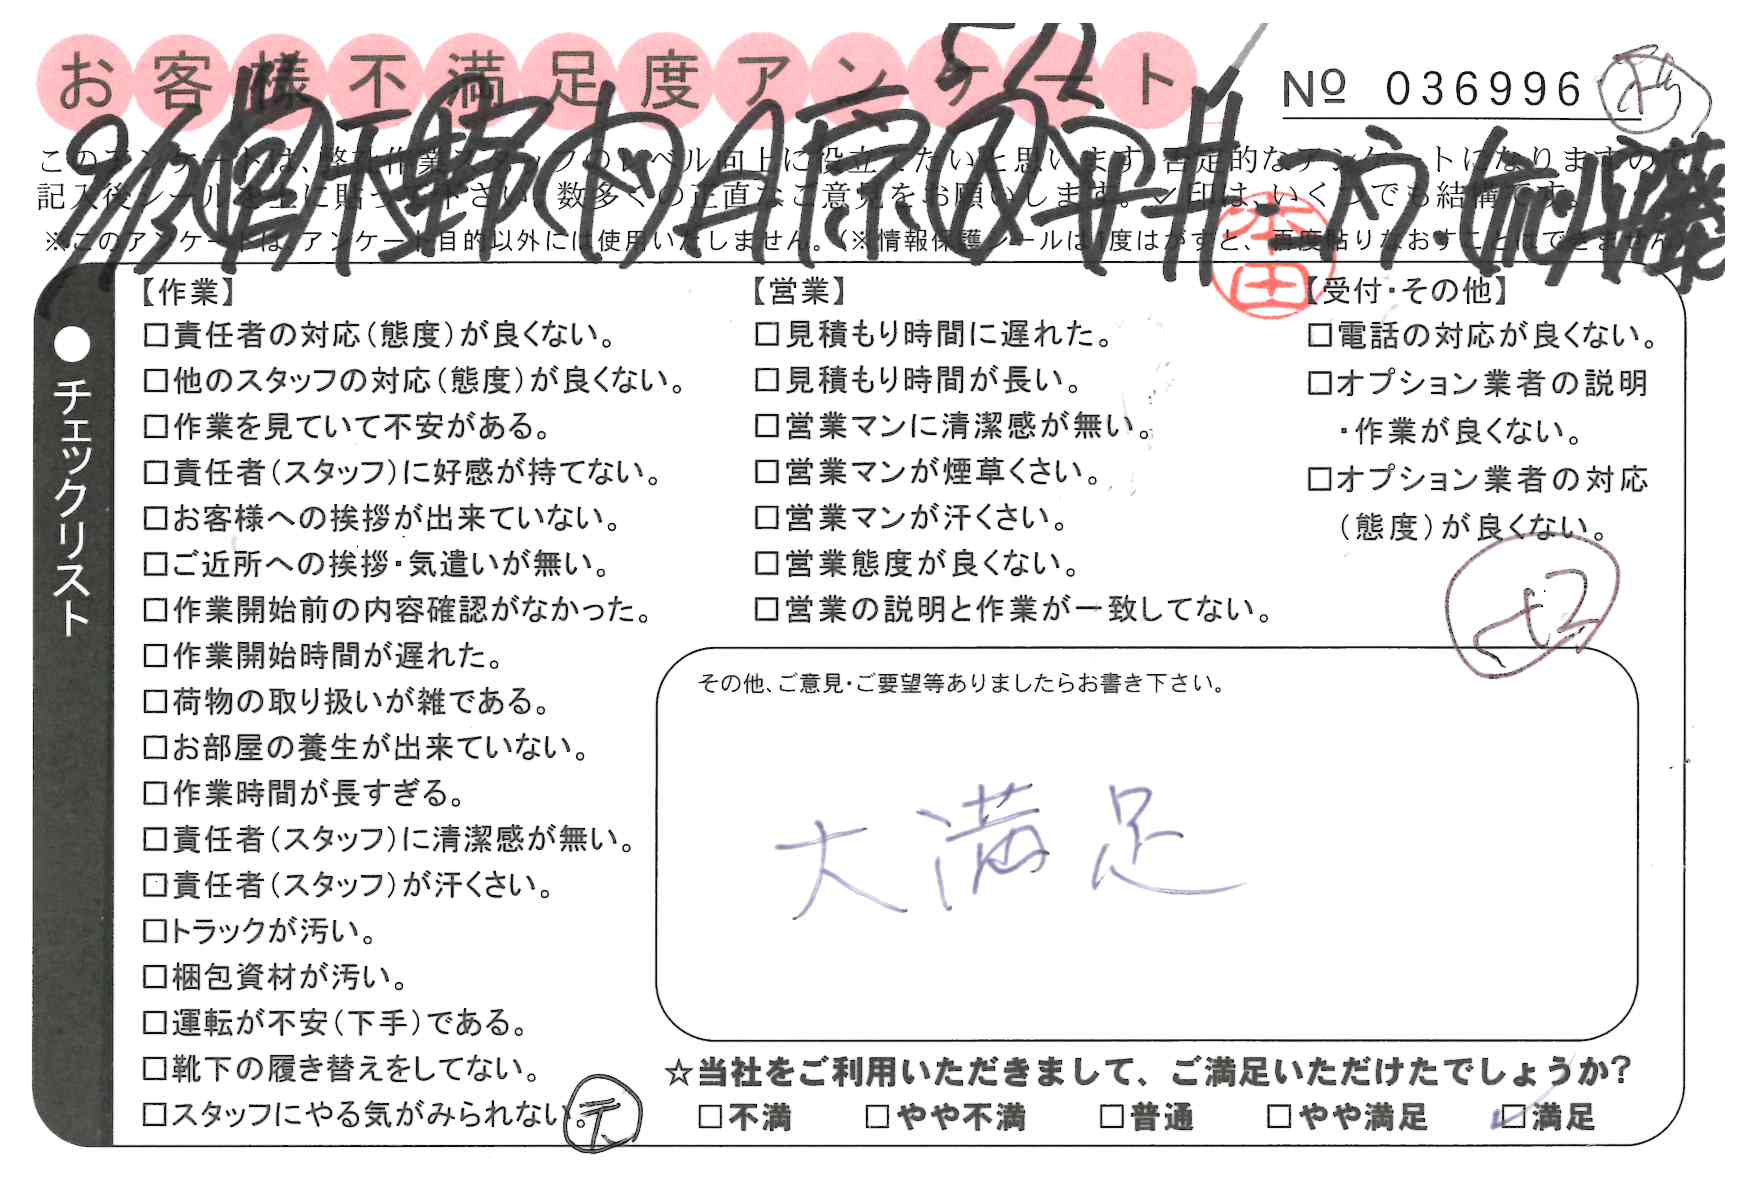 お客様不満足度アンケート
№ 036996
このアンケートは、弊社作業スタッフのレベル向上に役立てたいと思います。否定的なアンケートになりますので
記入後シールを上に貼って下さい。数多くの正直なご意見をお願いします。✓印は、いくつでも結構です。
※このアンケートは、アンケート目的以外には使用いたしません。（※情報保護シールは1度はがすと、再度貼りなおすことはできません
本田
●チェックリスト
【作業】
□責任者の対応（態度）が良くない。
□他のスタッフの対応（態度）が良くない。
□作業を見ていて不安がある。
□責任者（スタッフ）に好感が持てない。
□お客様への挨拶が出来ていない。
□ご近所への挨拶・気遣いが無い。
□作業開始前の内容確認がなかった。
□作業開始時間が遅れた。
□荷物の取り扱いが雑である。
□お部屋の養生が出来ていない。
□作業時間が長すぎる。
□責任者（スタッフ）に清潔感が無い。
□責任者（スタッフ）が汗くさい。
□トラックが汚い。
□梱包資材が汚い。
□運転が不安（下手）である。
□靴下の履き替えをしてない。
□スタッフにやる気がみられない。
【営業】
□見積もり時間に遅れた。
□見積もり時間が長い。
□営業マンに清潔感が無い。
□営業マンが煙草くさい。
□営業マンが汗くさい。
□営業態度が良くない。
□営業の説明と作業が一致してない。
【受付・その他】
□電話の対応が良くない。
□オプション業者の説明
・作業が良くない。
□オプション業者の対応
（態度）が良くない。
その他、ご意見・ご要望等ありましたらお書き下さい。
大満足
☆当社をご利用いただきまして、ご満足いただけたでしょうか?
□不満 □やや不満 □普通 □やや満足 ☑満足